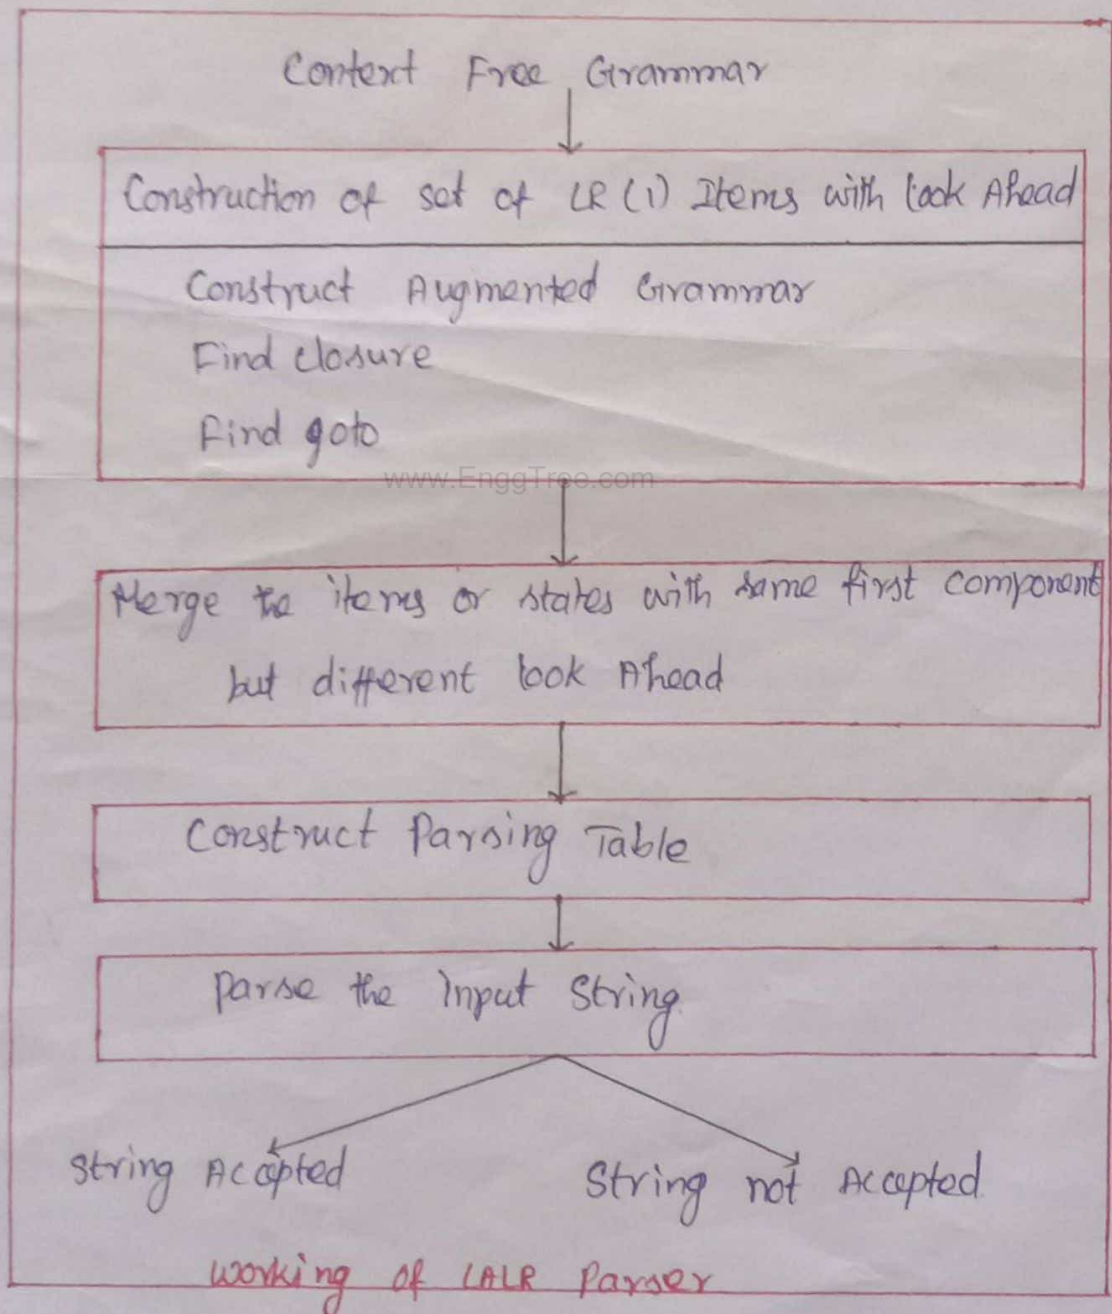 Context Free Grammar
Construction of set of LR (1) Items with look Ahead
Construct Augmented Grammar
Find closure
Find goto
www.EnggTree.com
Merge the items or states with same first component
but different look Ahead
Construct Parsing Table
parse the Input String
String Accepted
String not Accepted
working of LALR Parser